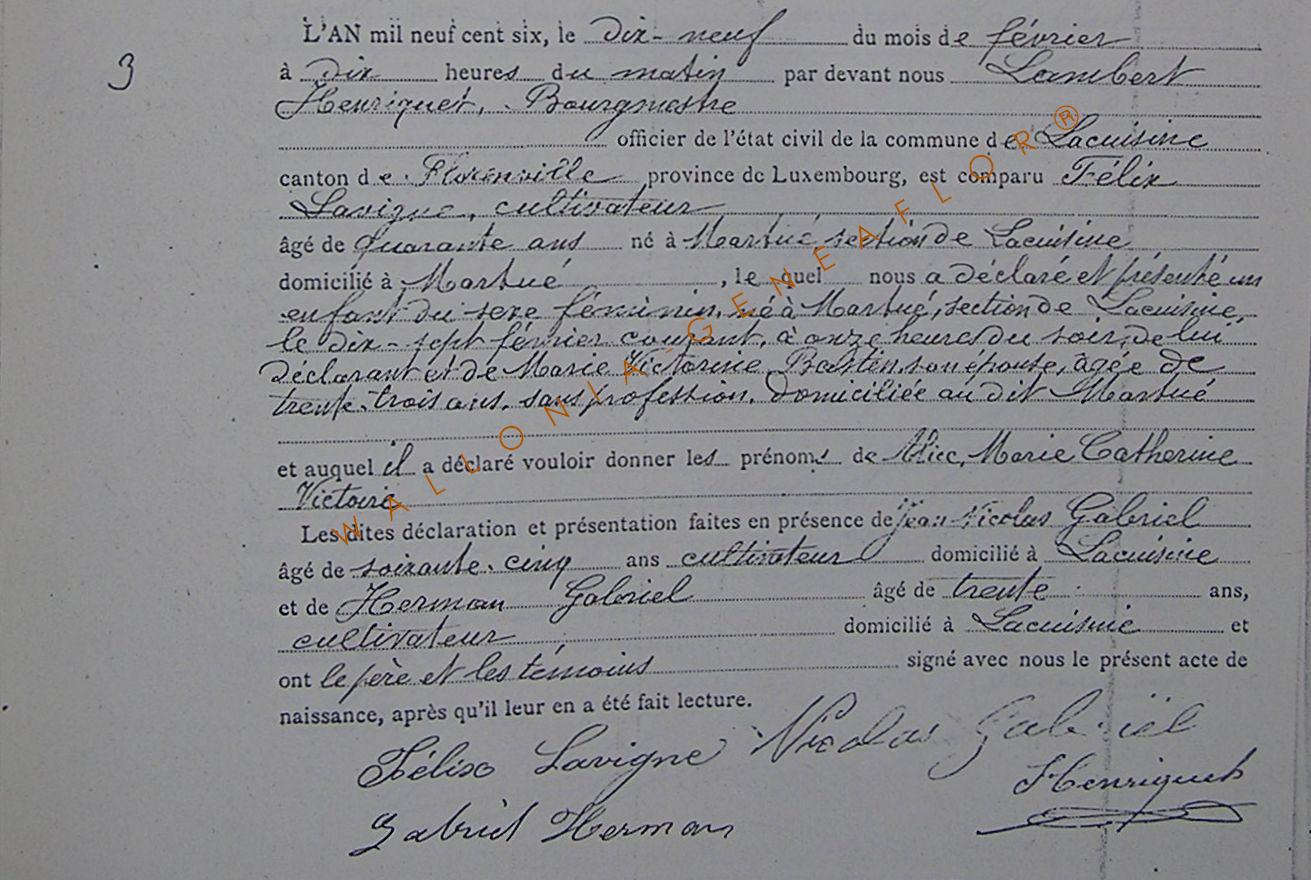 L'AN mil neuf cent six, le dix-neuf du mois de février
3
à dix heures du matin par devant nous Lambert
Henriquet, Bourgmestre
officier de l'état civil de la commune de Lacuisine
canton de Florenville province de Luxembourg, est comparu Félix
Lavigne, cultivateur
âgé de quarante ans né à Martué section de Lacuisine
domicilié à Martué, le quel nous a déclaré et présenté un
enfant du sexe féminin, né à Martué, section de Lacuisine,
le dix-sept février courant, à onze heures du soir, de lui
déclarant et de Marie Victorine Bastin, son épouse, âgée de
trente-trois ans, sans profession, domiciliée au dit Martué
et auquel il a déclaré vouloir donner les prénoms de Alice, Marie Catherine
Victoire
Les dites déclaration et présentation faites en présence de Jean-Nicolas Gabriel
âgé de soixante-cinq ans cultivateur domicilié à Lacuisine
et de Herman Gabriel âgé de trente ans,
cultivateur domicilié à Lacuisine et
ont le père et les témoins signé avec nous le présent acte de
naissance, après qu'il leur en a été fait lecture.
Félix Lavigne Nicolas Gabriël
Henriquet
Gabriel Herman
WALLONIA-GENEAFLOR®